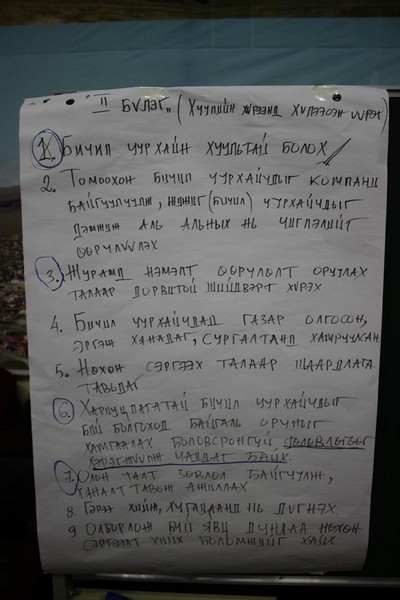 "II БҮЛЭГ" (ХУУЛИЙН ХҮРЭЭНД ХҮЛЭЭСЭН ҮҮРЭГ)
1. БИЧИЛ УУРХАЙН ХУУЛЬТАЙ БОЛОХ
2. ТОМООХОН БИЧИЛ УУРХАЙЧДЫГ КОМПАНИ
БАЙГУУЛЧУУЛЖ, ЖИЖИГ (БИЧИЛ) УУРХАЙЧДЫГ
ДЭМЖИЖ АЛЬ АЛЬНЫХ НЬ ЧИГЛЭЛИЙГ
ӨӨРЧЛҮҮЛЭХ
3. ЖУРАМД НЭМЭЛТ ӨӨРЧЛӨЛТ ОРУУЛАХ
ТАЛААР ДОРВИТОЙ ШИЙДВЭРТ ХҮРЭХ
4. БИЧИЛ УУРХАЙЧДАД ГАЗАР ОЛГОСОН,
ЭРГЭЖ ХАНАДАГ, СУРГАЛТАНД ХАМРУУЛСАН
5. НӨХӨН СЭРГЭЭХ ТАЛААР ШААРДЛАГА
ТАВЬДАГ
6. ХАРИУЦЛАГАТАЙ БИЧИЛ УУРХАЙЧДЫГ
БИЙ БОЛГОХОД БАЙГАЛЬ ОРЧНЫГ
ХАМГААЛАХ БОЛОВСРОНГУЙ
ХЭРЭГЖҮҮЛЖ ЧАДДАГ БАЙХ.
7. ОЛОН ТАЛТ ЗӨВЛӨЛ БАЙГУУЛЖ,
ХЯНАЛТ ТАВЬЖ АЖИЛЛАХ
8. ГЭРЭЭ ХИЙЖ, ХУГАЦААНД НЬ ДҮГНЭХ
9 ОЛБОРЛОЖ БУЙ ЯВЦ ДУНДАА НӨХӨН
СЭРГЭЭЛТ ХИЙХ БОЛОМЖИЙГ ХАЙХ